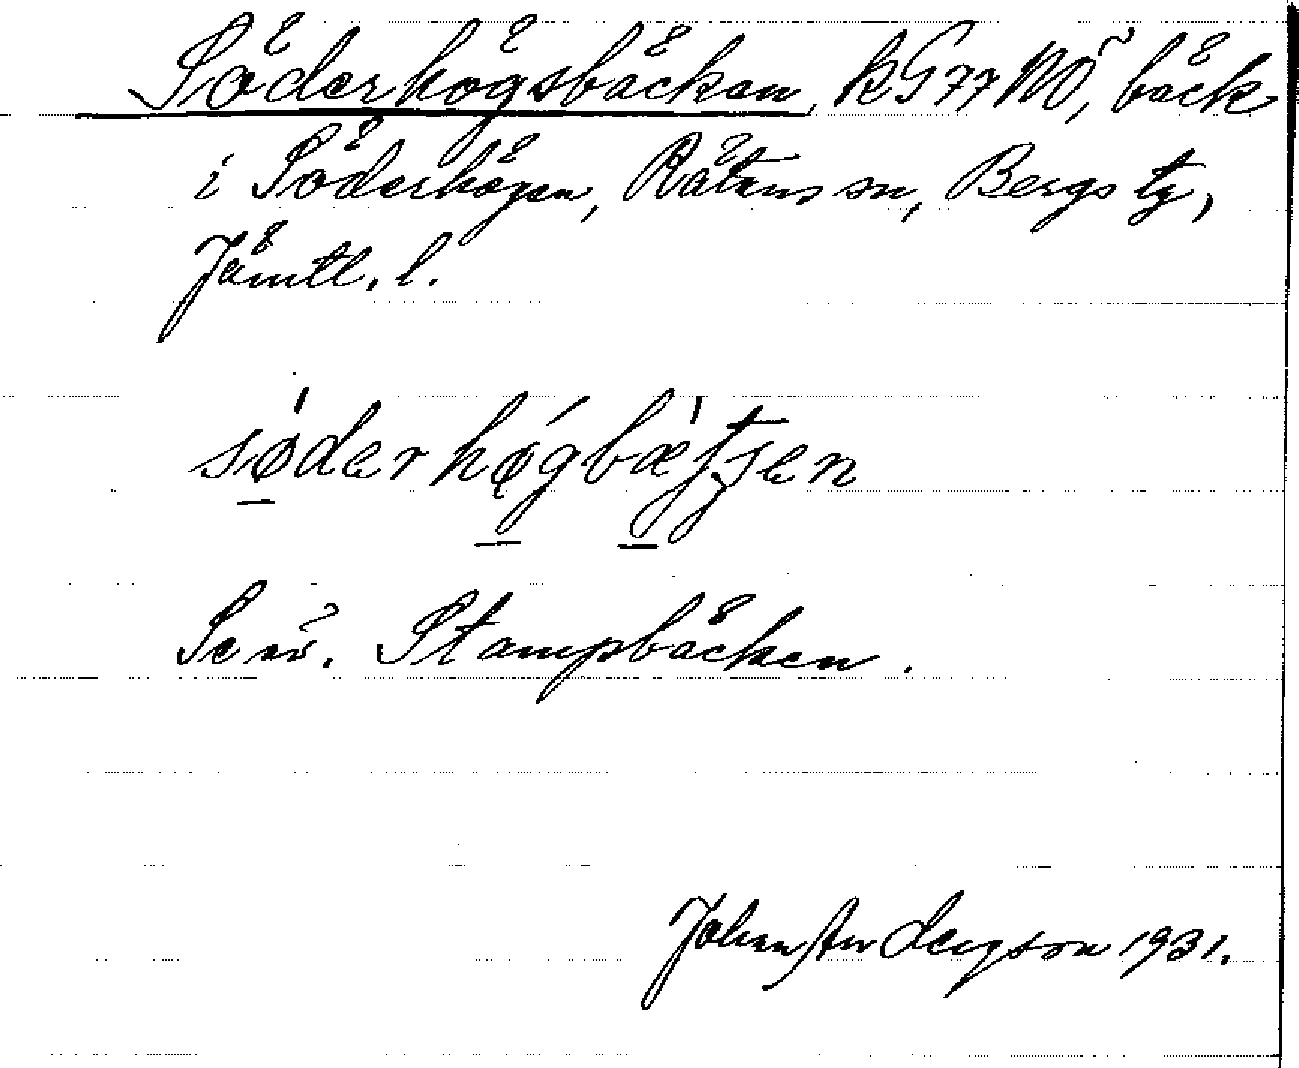 Söderhögsbäcken, kG 77 NÖ, bäck
i Söderhögen, Rätans sn, Bergs tg,
Jämtl. l.
søderhøgbætjen
Se äv. Stampbäcken.
Johan 1931.